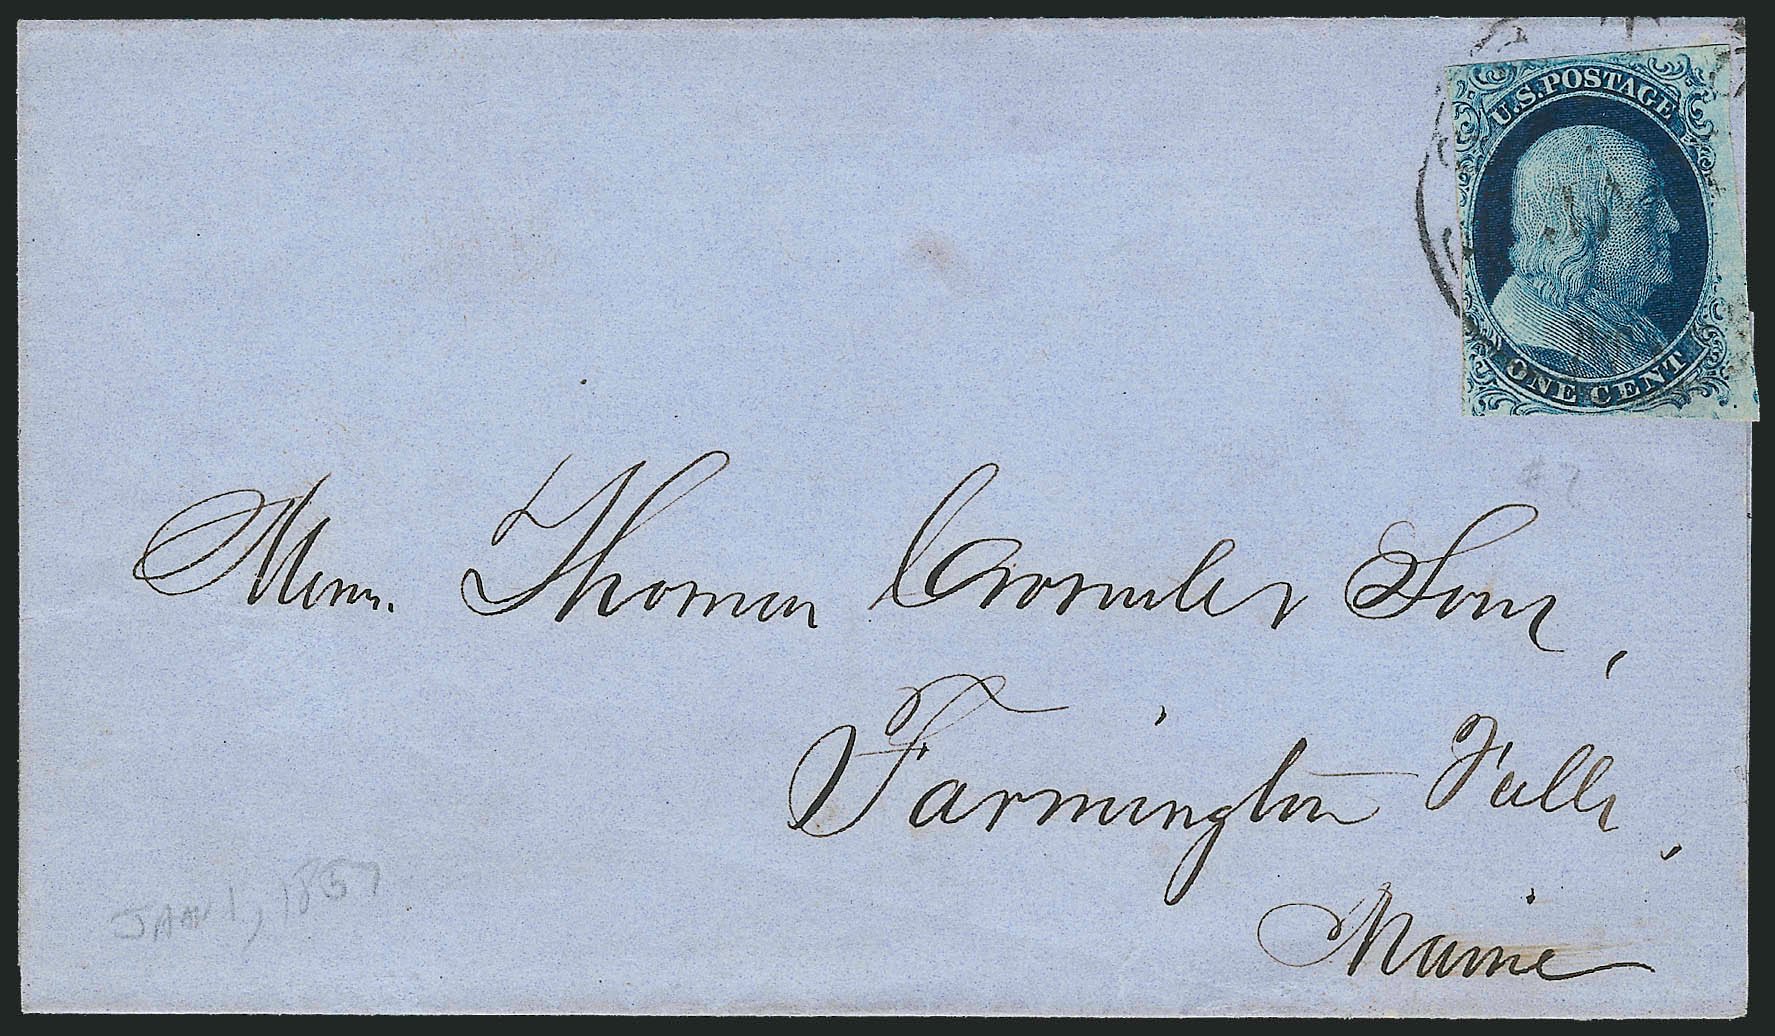 U.S. POSTAGE
ONE CENT
#7
Messrs. Thomas Croswell & Sons,
Farmington Falls,
Maine
JAN 1, 1857